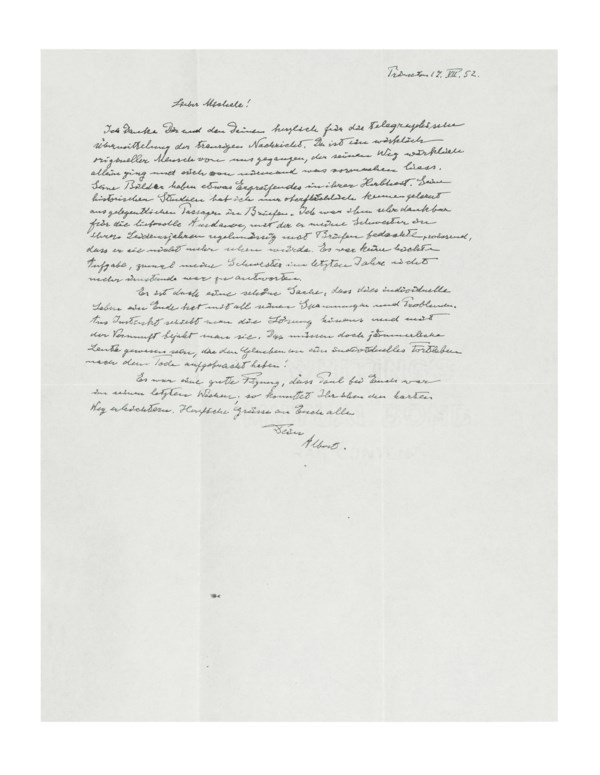 Princeton 17. XII. 52.
Lieber Michele!
Ich danke Dir und den Deinen herzlich für die telegraphische
Übermittelung der traurigen Nachricht. Da ist ein wirklich
origineller Mensch von uns gegangen, der seinen Weg wirklich
allein ging und sich von niemand was vormachen liess.
Seine Bilder haben etwas Ergreifendes in ihrer Herbheit. Seine
historischen Studien hab ich nur oberflächlich kennen gelernt
aus gelegentlichen Passagen in Briefen. Ich war ihm sehr dankbar
für die liebevolle Ausdauer, mit der er meine Schwester in
ihren Leidensjahren regelmässig mit Briefen bedachte, wissend,
dass er sie nicht mehr sehen würde. Es war keine leichte
Aufgabe, zumal meine Schwester im letzten Jahre nicht
mehr imstande war zu antworten.
Es ist doch eine schöne Sache, dass dies individuelle
Leben ein Ende hat mit all seinen Spannungen und Problemen.
Aus Instinkt schiebt man die Lösung hinaus und mit
der Vernunft bejaht man sie. Das müssen doch jämmerliche
Leute gewesen sein, die den Glauben an ein individuelles Fortleben
nach dem Tode aufgebracht haben!
Es war eine gute Fügung, dass Paul bei Euch war
in seinen letzten Wochen. so konntet Ihr ihm den harten
Weg erleichtern. Herzliche Grüsse an Euch alle
Dein
Albert.